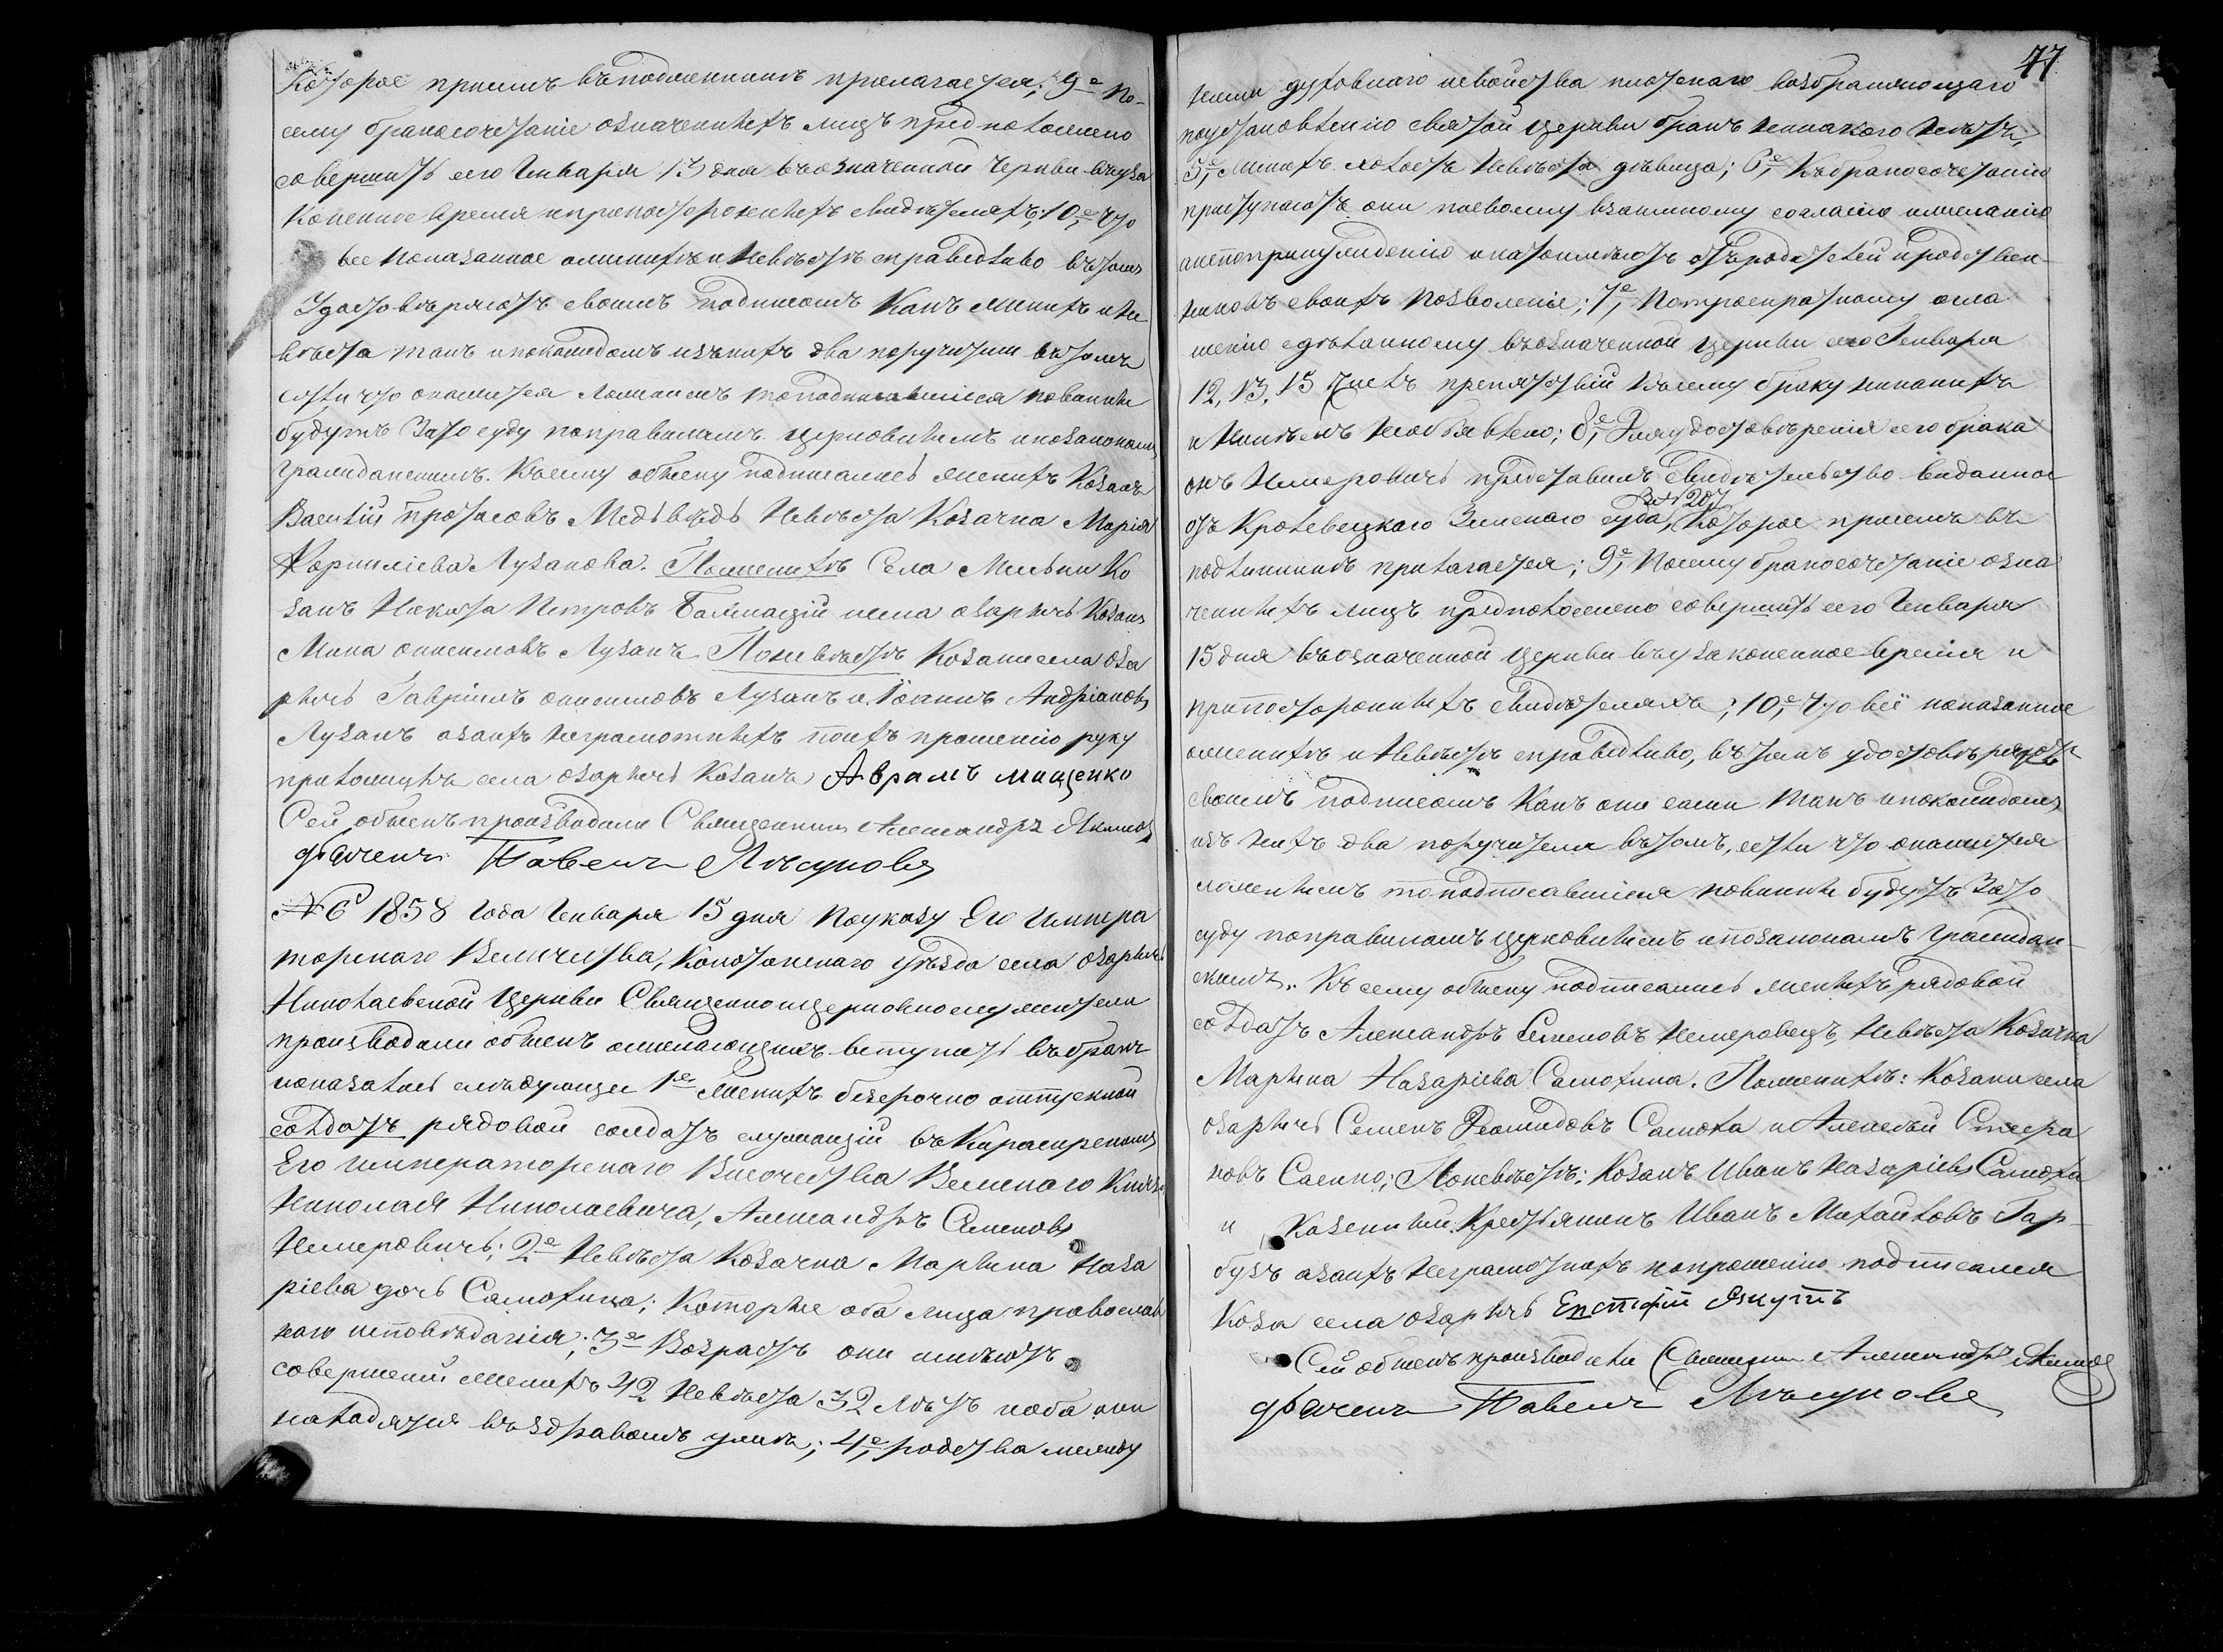 Которое присемъ въподлинникѣ прилагается; 9е По-
сему бракосочетаніе означенныхъ лицъ предположено
совершить сего Генваря 13 дня въозначенной Церкви въуза
Коненное время припостороннихъ свидѣтеляхъ; 10,е Что
все показанное оженихѣ и Невѣстѣ справедливо вътомъ
Удостовѣряютъ своимъ подписомъ Какъ женихъ и не
вѣста такъ и покаждомъ изънихъ два поручители втомъ
естли что окажется Ложнымъ топодписавшіеся повинны
будутъ Зато суду поправиламъ церковнымъ и позаконамъ
гражданскимъ. Ксему обыску подписались женихъ Козакъ
Василій Протасовъ Медьвѣдь Невѣста Козачка Марія
Корниліева Лузанова. Поженихѣ Села Мельни Ко
закъ Никита Петровъ исела озаричь Козакъ
Мина онисимовъ Лузанъ Поневѣстѣ Козаки села оза
ричь Гавріилъ онисимовъ Лузанъ и Іоаннъ Андріановъ
Лузанъ азаихъ неграмотныхъ поихъ прошенію руку
приложилъ села озаричь Козакъ Аврамъ мищенко
Сей обыскъ производили Священникъ Александръ Якимов
дьячекъ Павелъ Лѣсуновъ
№ 6 1858 года Генваря 15 дня Поуказу Его Импера
торскаго Величества, Конотопскаго уѣзда села озаричь
Николаевской Церкви Священноицерковнослужители
производили обыскъ ожелающихъ вступить въ бракъ
иоказалось слѣдующее 1е Женихъ безсрочно отпускной
солдатъ рядовой солдатъ служащій въ Кирасирскомъ
Его императорскаго Высочества Великаго Князя
Николая Николаевича, Александръ Семеновъ
Немеровичь; 2е Невѣста Козачка Марѳина Наза
ріева дочь Самохина; Которые оба лица православ
наго исповѣданія; 3е Возрастъ они имѣютъ
совершенный Женихъ 42 Невѣста 32 лѣтъ иоба они
находятся въздравомъ умѣ; 4,е родства между
77
ними духовнаго исвойства плотскаго возбраняющаго
поустановленію святой Церкви бракъ никакого нѣтъ;
5,е Женихъ холостъ Невѣста дѣвица; 6,е Къбракосочетанію
приступаютъ они посвоему взаимному согласію ижеланію
анепопринужденію инатоимѣютъ отъродителей и родствен-
никовъ своихъ позволеніе; 7,е Потроекратному огла
шенію сдѣланному въозначенной Церкви сего Генваря
12, 13, 15 Числъ препятствій Ксему браку никакихъ
и Никѣмъ необъявлено; 8,е Дляудостовѣренія сего брака
онъ Немеровичь представилъ Свидѣтельство виданное
за№ 207
отъ Кролевецкаго Земскаго суда, Которое присемъ въ
подлинникѣ прилагается; 9,е Посему бракосочетаніе озна
ченныхъ лицъ предположено совершить сего Генваря
15 дня въозначенной Церкви въузаконенное время и
припостороннихъ Свидѣтеляхъ; 10,е Что всё показанное
оженихѣ и Невѣстѣ справедливо, вътомъ удостовѣряютъ
своимъ подписомъ Какъ они сами такъ и покаждомъ
изъ нихъ два поручителя втомъ, естли что окажется
ложнымъ то подписавшіеся повинны будутъ Зато
суду поправиламъ церковнымъ и позаконамъ граждан-
скимъ. Ксему обыску подписались женихъ рядовой
солдатъ Александръ Семеновъ Немеровецъ, Невѣста Козачка
Марѳина Назаріева Самохина. Поженихѣ: Козаки села
озаричь Семенъ Самоха и Алексѣй
новъ Саенко; Поневѣстѣ: Козакъ Иванъ Назаріевъ Самоха
и Казенный Крестьянинъ Иванъ Михайловъ Гар-
бузъ азаихъ неграмотныхъ попрошенію подписался
Коза села озаричь Якутъ
Сей обыскъ производили Священникъ Александръ Якимов
дьячекъ Павелъ Лѣсуновъ